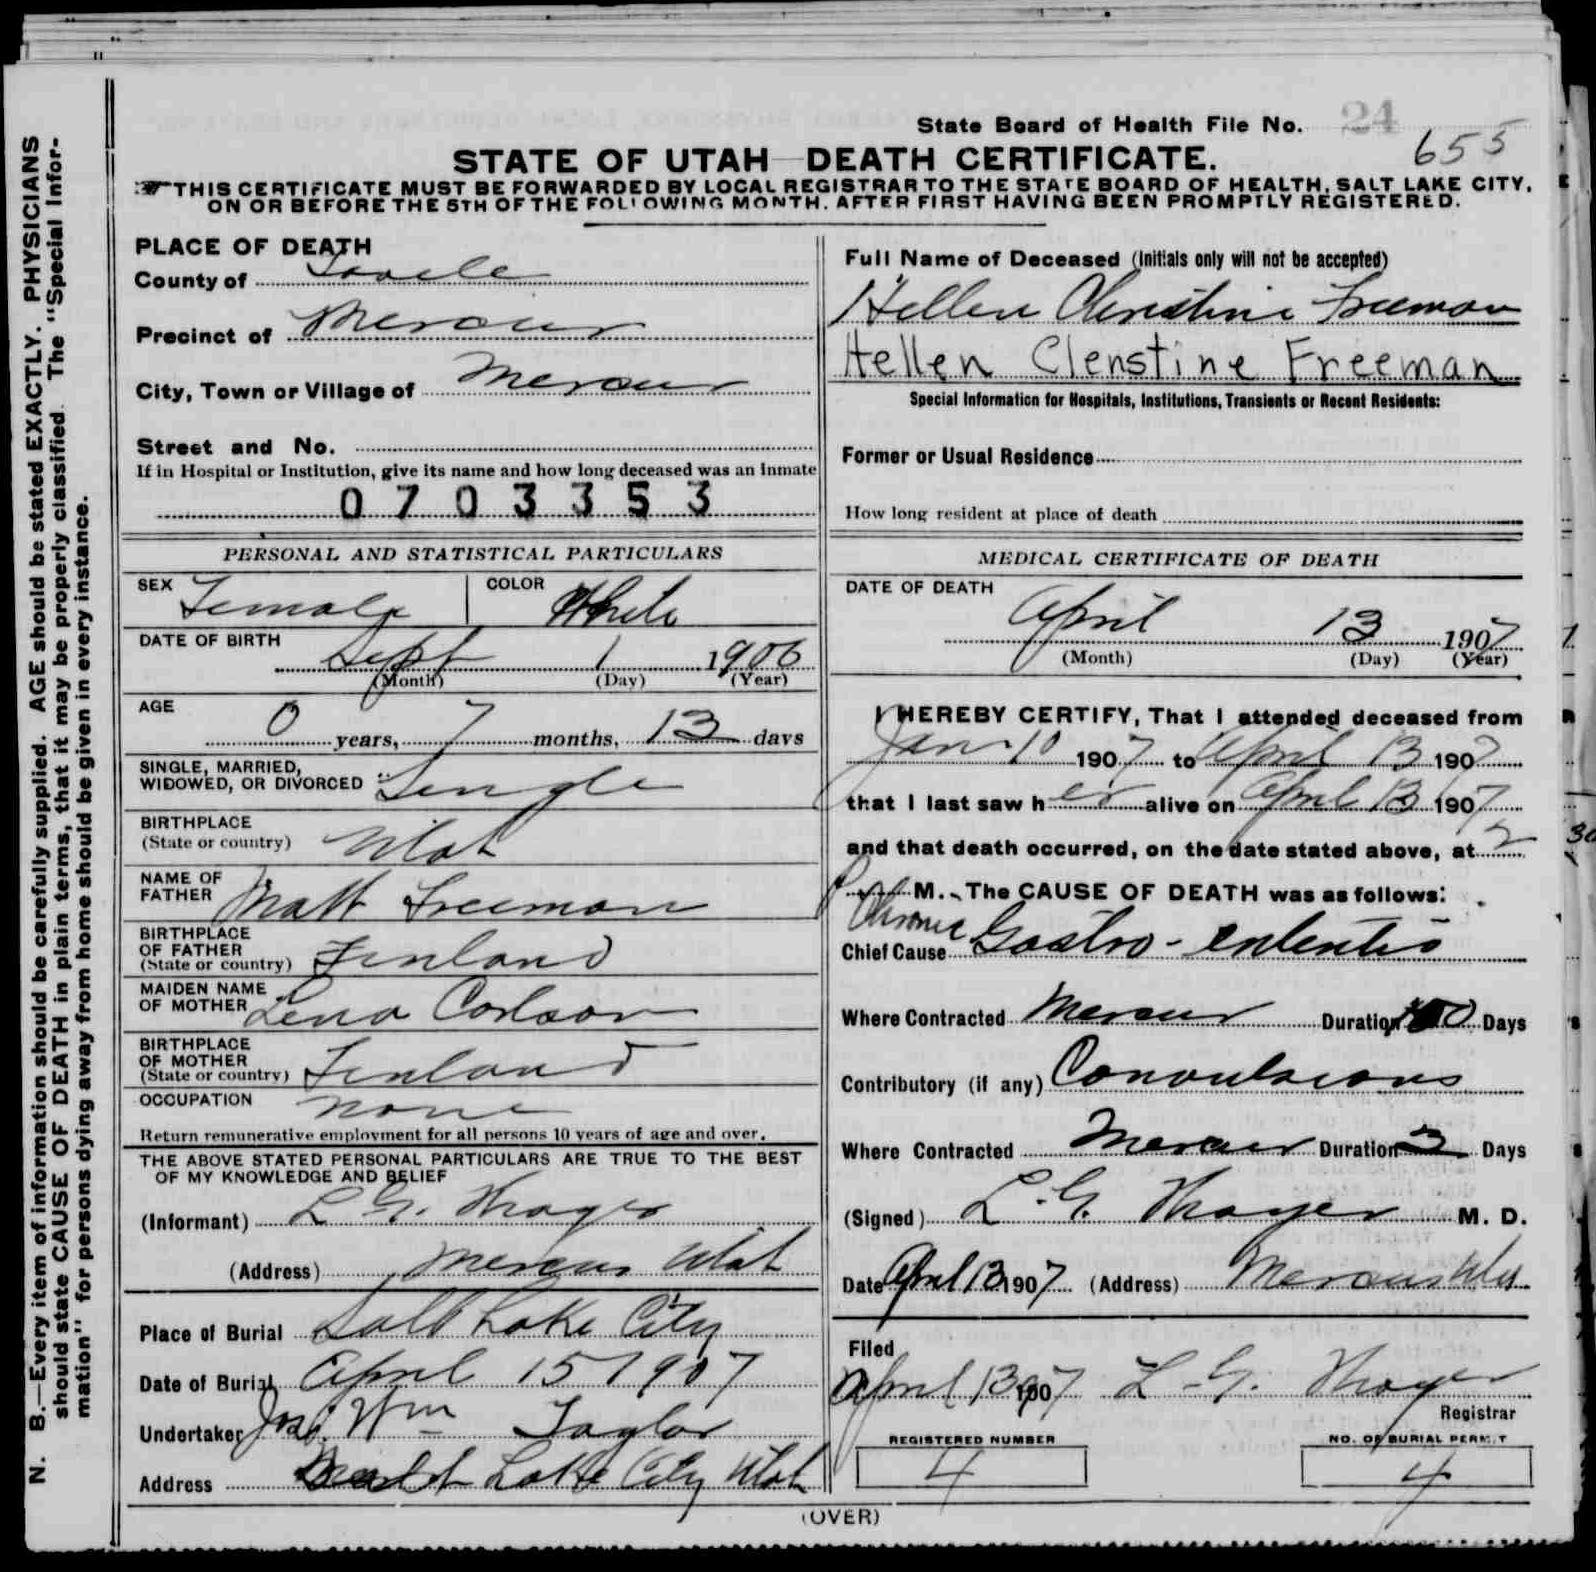 State Board of Health File No. 24
655
STATE OF UTAH—DEATH CERTIFICATE.
THIS CERTIFICATE MUST BE FORWARDED BY LOCAL REGISTRAR TO THE STATE BOARD OF HEALTH, SALT LAKE CITY,
ON OR BEFORE THE 5TH OF THE FOLLOWING MONTH, AFTER FIRST HAVING BEEN PROMPTLY REGISTERED.
N. B.—Every item of information should be carefully supplied. AGE should be stated EXACTLY. PHYSICIANS
should state CAUSE OF DEATH in plain terms, that it may be properly classified. The "Special Infor-
mation" for persons dying away from home should be given in every instance.
PLACE OF DEATH
County of Tooele
Precinct of Mercur
City, Town or Village of Mercur
Street and No.
If in Hospital or Institution, give its name and how long deceased was an inmate
0703353
Full Name of Deceased (Initials only will not be accepted)
Hellen Christine Freeman
Hellen Clenstine Freeman
Special Information for Hospitals, Institutions, Transients or Recent Residents:
Former or Usual Residence
How long resident at place of death
PERSONAL AND STATISTICAL PARTICULARS
SEX Female COLOR White
DATE OF BIRTH
Sept 1 1906
(Month) (Day) (Year)
AGE
0 years, 7 months, 13 days
SINGLE, MARRIED,
WIDOWED, OR DIVORCED Single
BIRTHPLACE
(State or country) Utah
NAME OF
FATHER Matt Freeman
BIRTHPLACE
OF FATHER
(State or country) Finland
MAIDEN NAME
OF MOTHER Lena Carlson
BIRTHPLACE
OF MOTHER
(State or country) Finland
OCCUPATION none
Return remunerative employment for all persons 10 years of age and over.
THE ABOVE STATED PERSONAL PARTICULARS ARE TRUE TO THE BEST
OF MY KNOWLEDGE AND BELIEF
(Informant) L. G. Thayer
(Address) Mercur Utah
Place of Burial Salt Lake City
Date of Burial April 15 1907
Undertaker Jos. Wm Taylor
Address Salt Lake City Utah
MEDICAL CERTIFICATE OF DEATH
DATE OF DEATH
April 13 1907
(Month) (Day) (Year)
I HEREBY CERTIFY, That I attended deceased from
Jan 10 1907 to April 13 1907
that I last saw her alive on April 13 1907
and that death occurred, on the date stated above, at 2
P M. The CAUSE OF DEATH was as follows:
Chronic
Chief Cause Gastro-enteritis
Where Contracted Mercur Duration Days
Contributory (if any) Convulsions
Where Contracted Mercur Duration 3 Days
(Signed) L. G. Thayer M. D.
Date April 13 1907 (Address) Mercur Utah
Filed
April 13 1907 L. G. Thayer
Registrar
REGISTERED NUMBER
4
NO. OF BURIAL PERMIT
4
(OVER)